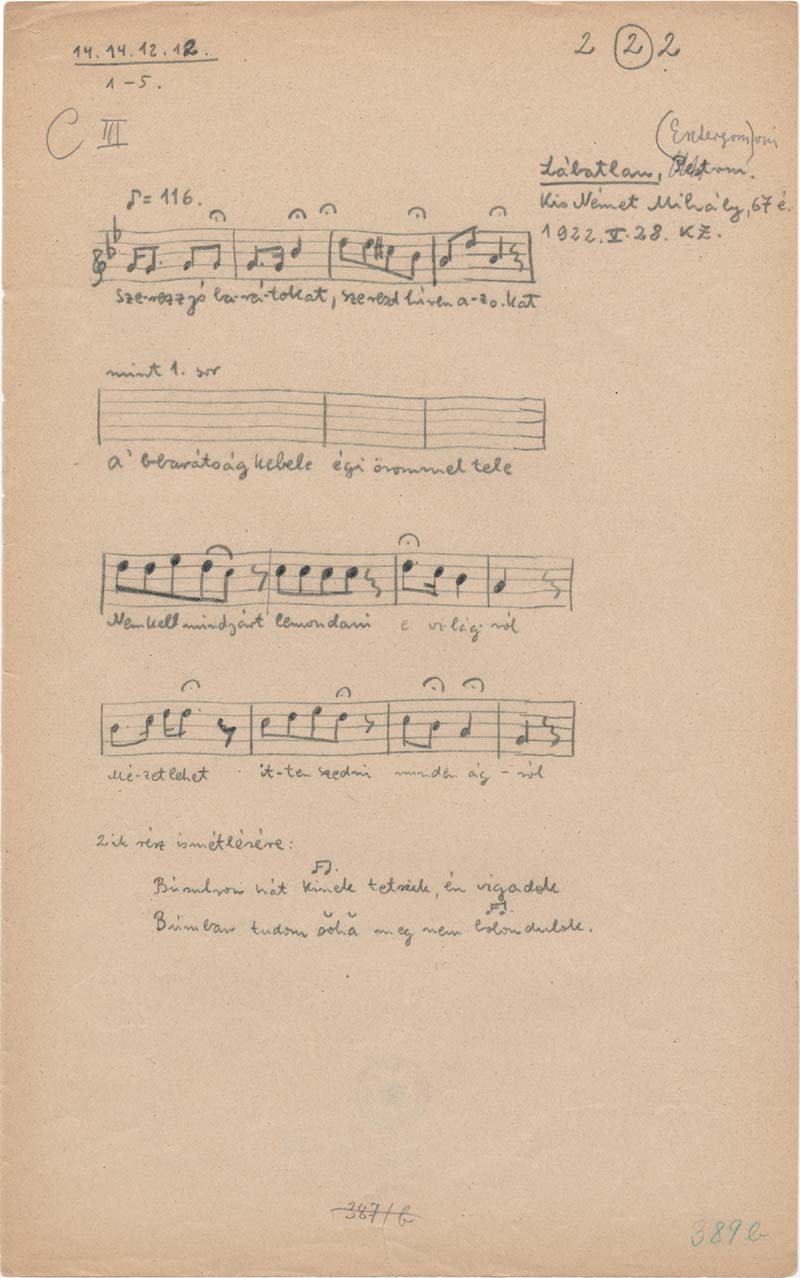 14.14.12.12.
1-5.
2 2 2
C III
(Esztergom)
Lábatlan,
Kis Német Mihály, 67 é.
1922. V. 28. KZ.
♪= 116.
Sze-rezz jó ba-rá-tokat, szeresd hiven a-zo-kat
mint 1. sor
a' b-barátság kebele égi örömmel tele
Nem kell mindjárt lemondani e vi-lág-ról
Mé-zet lehet it-ten szedni minden ág-ról
2ik rész ismétlésére:
Búsuljon hát kinek tetszik, én vigadok
Búmban tudom soha meg nem bolondulok.
387/b
389 b